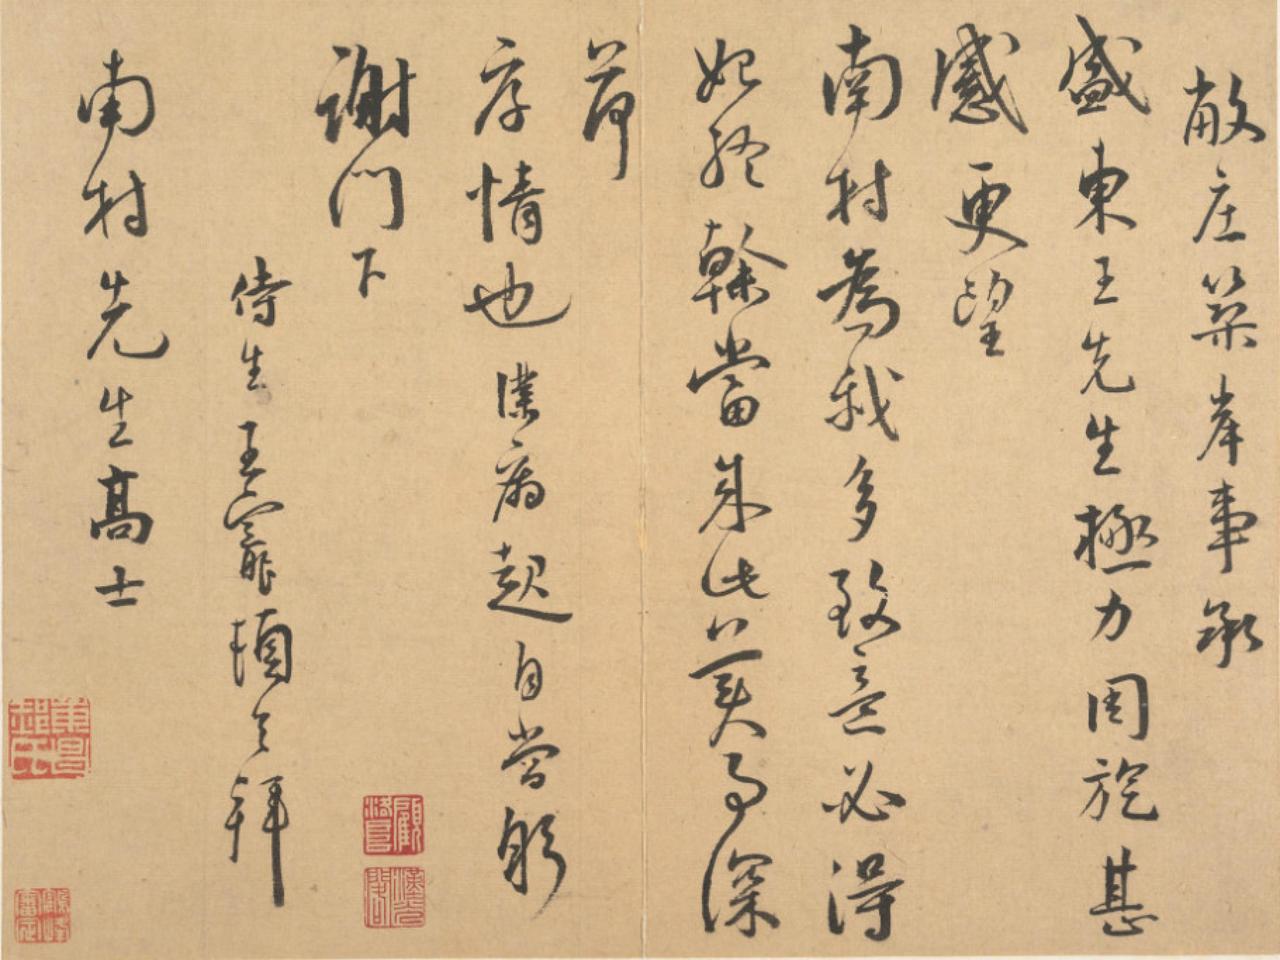 敝庄築岸事承
盛東王先生極力周旋甚
感更望
南村為我多致意必得
始終幹當成此美事深
荷
存情也僕病起自當躬
謝門下
侍生王寵頓首拜
南村先生高士
顧